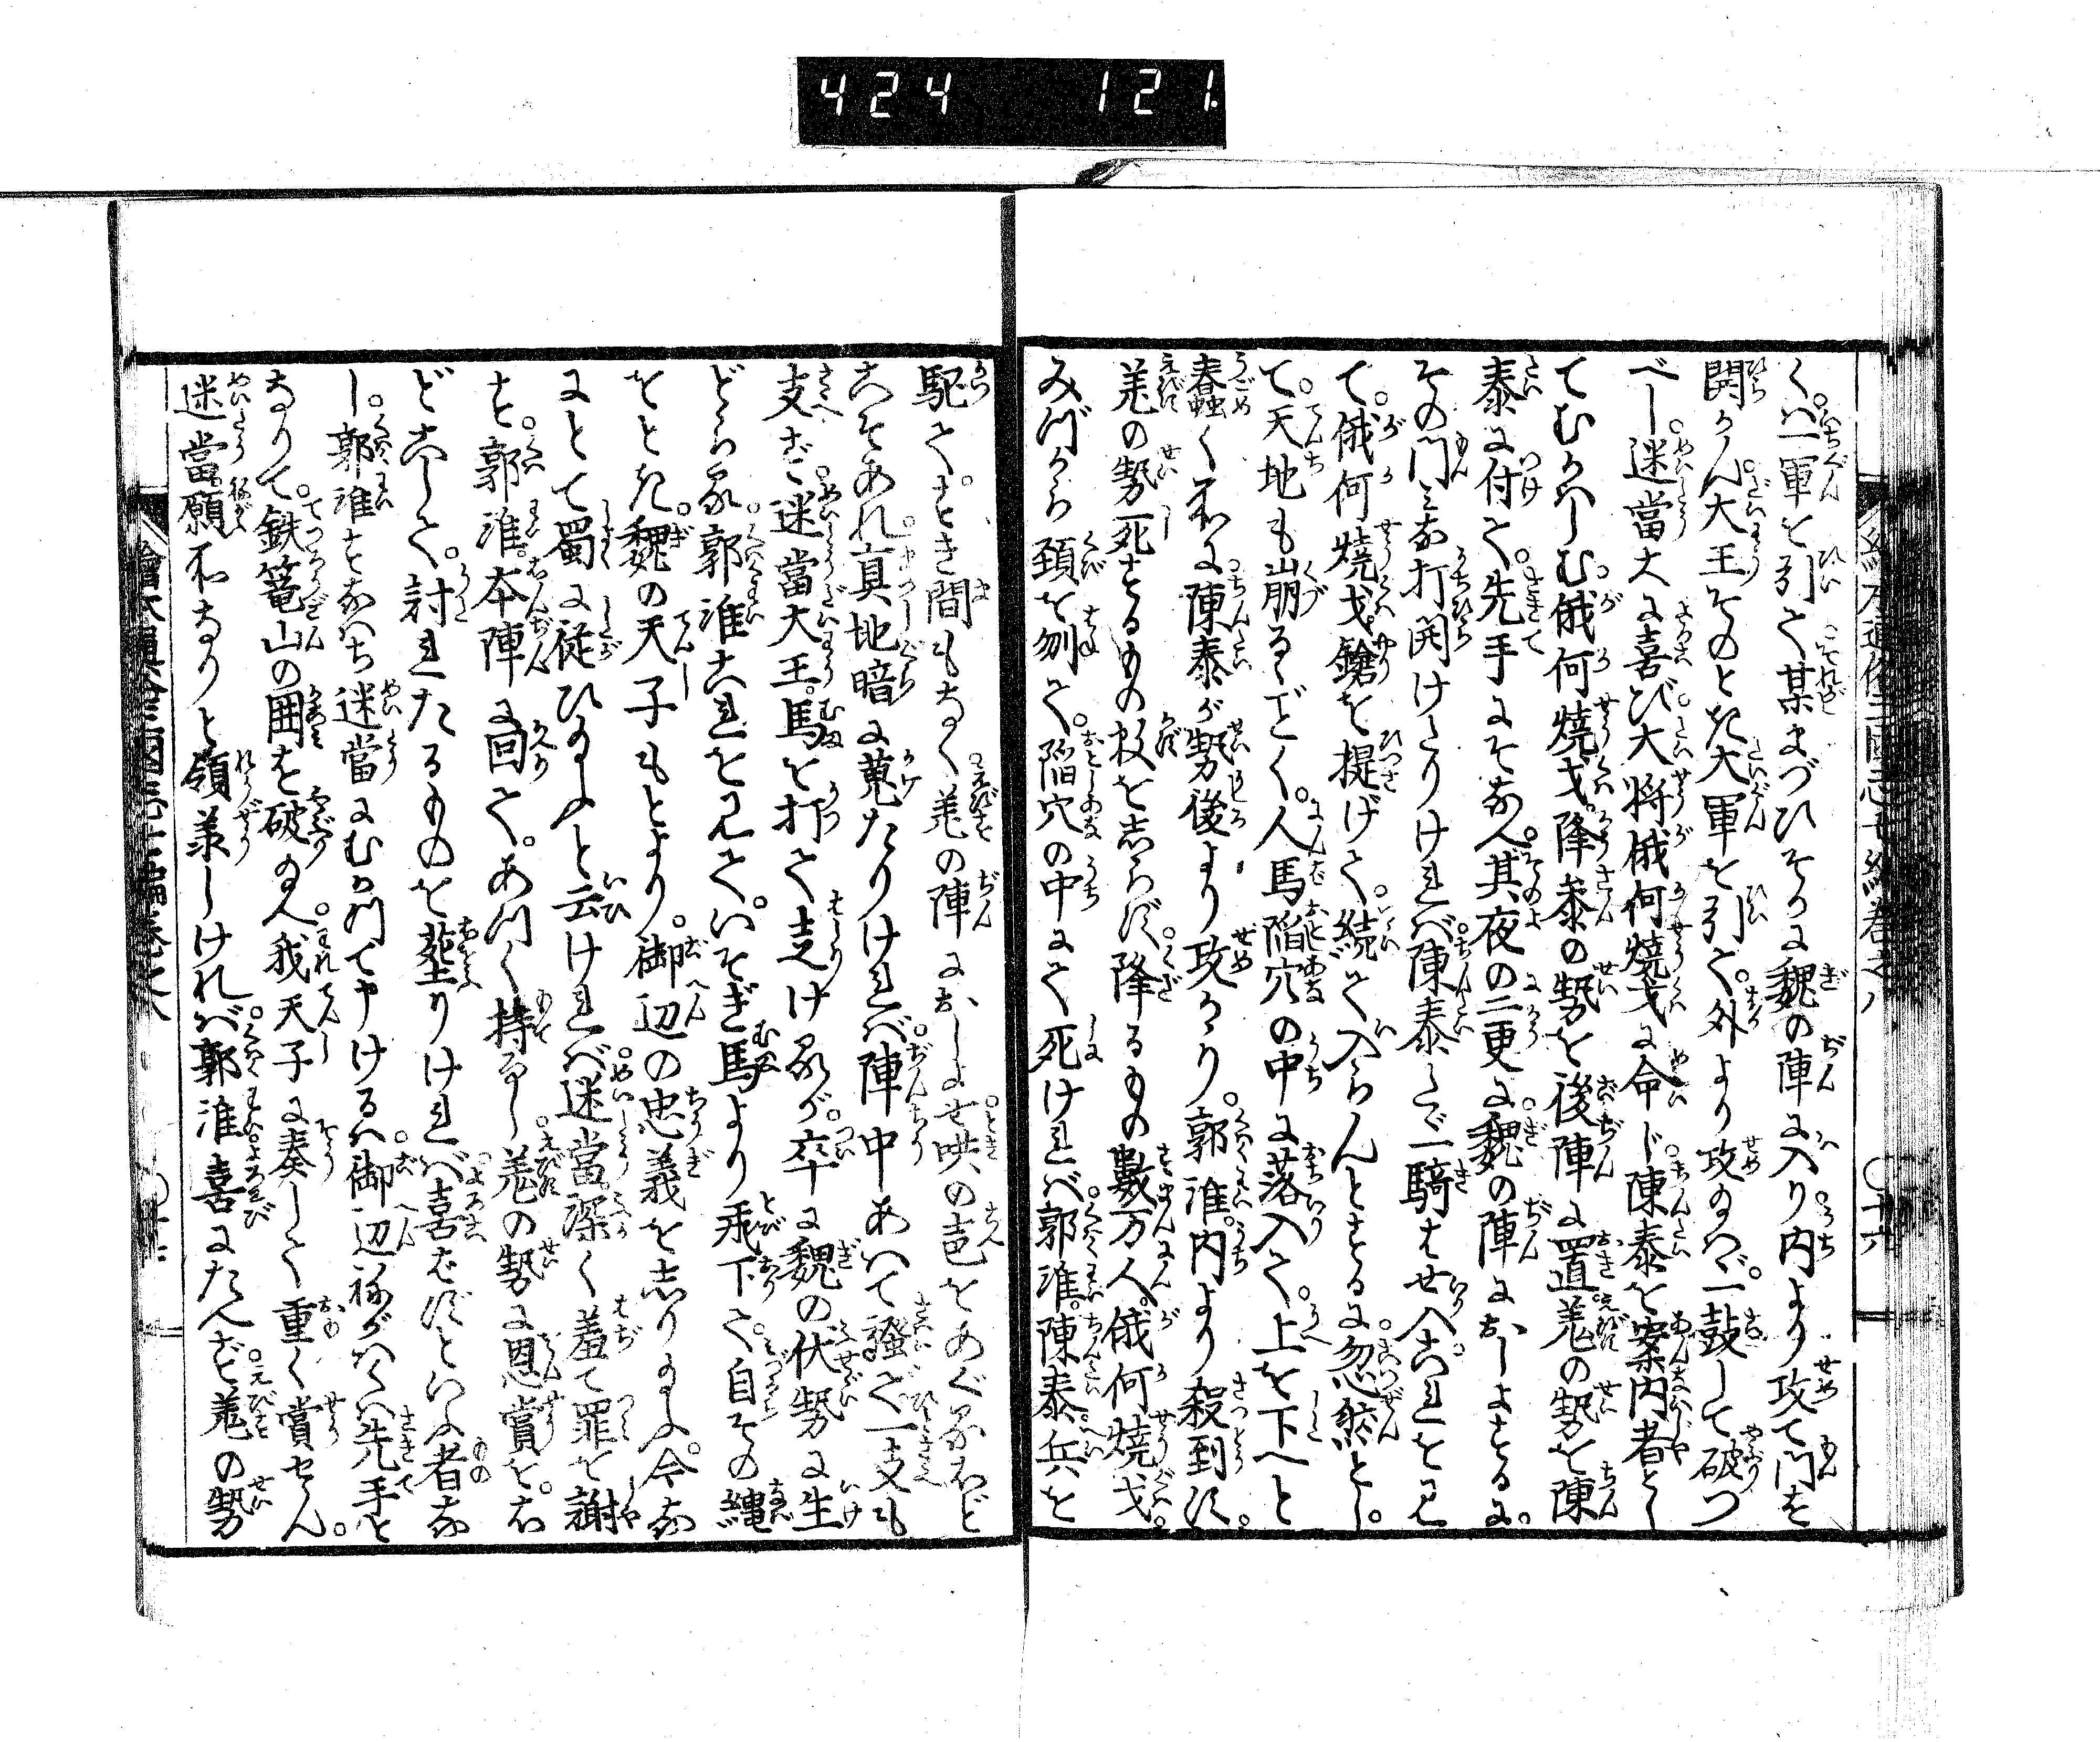 424 121.
繪本通俗三國志七編巻之八 〇十六
く。一軍を引て某まづひそかに魏の陣に入り内より攻て門を
開かん。大王そのとき大軍を引て。外より攻めば。一鼓して破つ
べし。迷當大に喜び。大将俄何焼戈に命じ。陳泰を案内者とし
てむかはしむ。俄何焼戈。降参の勢を後陣に置。羌の勢を陳
泰に付て。先手にそなへ。其夜の二更に。魏の陣におしよするに。
その門みな打開けたりければ。陳泰たゞ一騎はせ入。これを見
て。俄何焼戈。鎗を提げて。続て入らんとするに。忽然とし
て。天地も崩るゝごとく。人馬陥穴の中に落入て。上を下へと
蠢く所に。陳泰が勢後より攻かゝり。郭淮。内より殺到す。
羌の勢死するもの数をしらず。降るもの數万人。俄何焼戈。
みづから頚を刎て。陥穴の中にて死ければ。郭淮。陳泰。兵を
駈て。とき間もなく。羌の陣におしよせ。哄の声をあぐるほど
こそあれ。真地暗に蒐たりければ。陣中あはて騒で一支も
支へず。迷當大王。馬を打て走けるが。卒に魏の伏勢に生
どらる。郭淮これを見て。いそぎ馬より飛下て。自その縄
をとき。魏の天子もとより。御辺の忠義をしりたまふ。今な
にとて蜀に従ひたまふと云ければ。迷當深く羞て罪を謝
す。郭淮。本陣に回て。あつく持なし。羌の勢に恩賞を。ほ
どこして。討れたるものを葬りければ。喜ばずといふ者な
し。郭淮すなはち迷當にむかつて申けるは。御辺ねがはくは先手と
なりて。鉄篭山の囲を破り玉へ。我天子に奏して重く賞せん。
迷當願ふ所なりと領掌しければ。郭淮喜にたへず。羌の勢
繪本通俗三國志七編巻之八